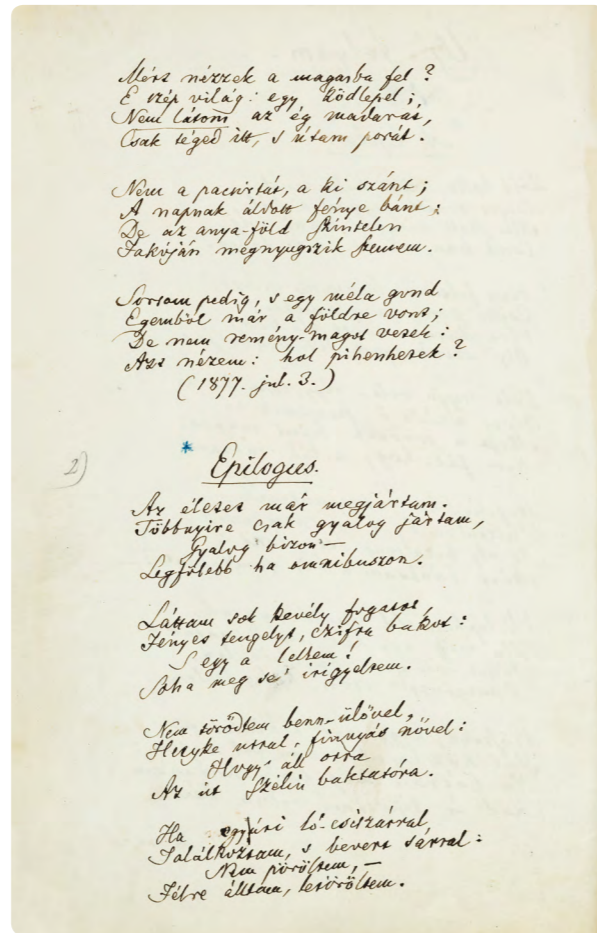 Mért nézzek a magasba fel?
E szép világ: egy ködlepel;
Nem látom az ég madarát,
Csak téged itt, s útam porát.
Nem a pacsirtát, a ki szánt;
A napnak áldott fénye bánt;
De az anya-föld színtelen
Fakóján megnyugszik szemem.
Sorsom pedig, s egy méla gond
Egemből már a földre vont;
De nem remény-magot vetek:
Azt nézem: hol pihenhetek?
(1877. jul. 3.)
*
2)
Epilogus.
Az életet már megjártam.
Többnyire csak gyalog jártam,
Gyalog bizon –
Legfölebb ha omnibuszon.
Láttam sok kevély fogatot,
Fényes tengelyt, czifra bakot:
S egy a lelkem!
Soha meg se' irigyeltem.
Nem törődtem benn-ülővel,
Hetyke úrral, finnyás nővel:
Hogy' áll orra
Az út szélin baktatóra.
Ha egy úri ló-csiszárral
Találkoztam, s bevert sárral:
Nem pöröltem, –
Félre álltam, letöröltem.